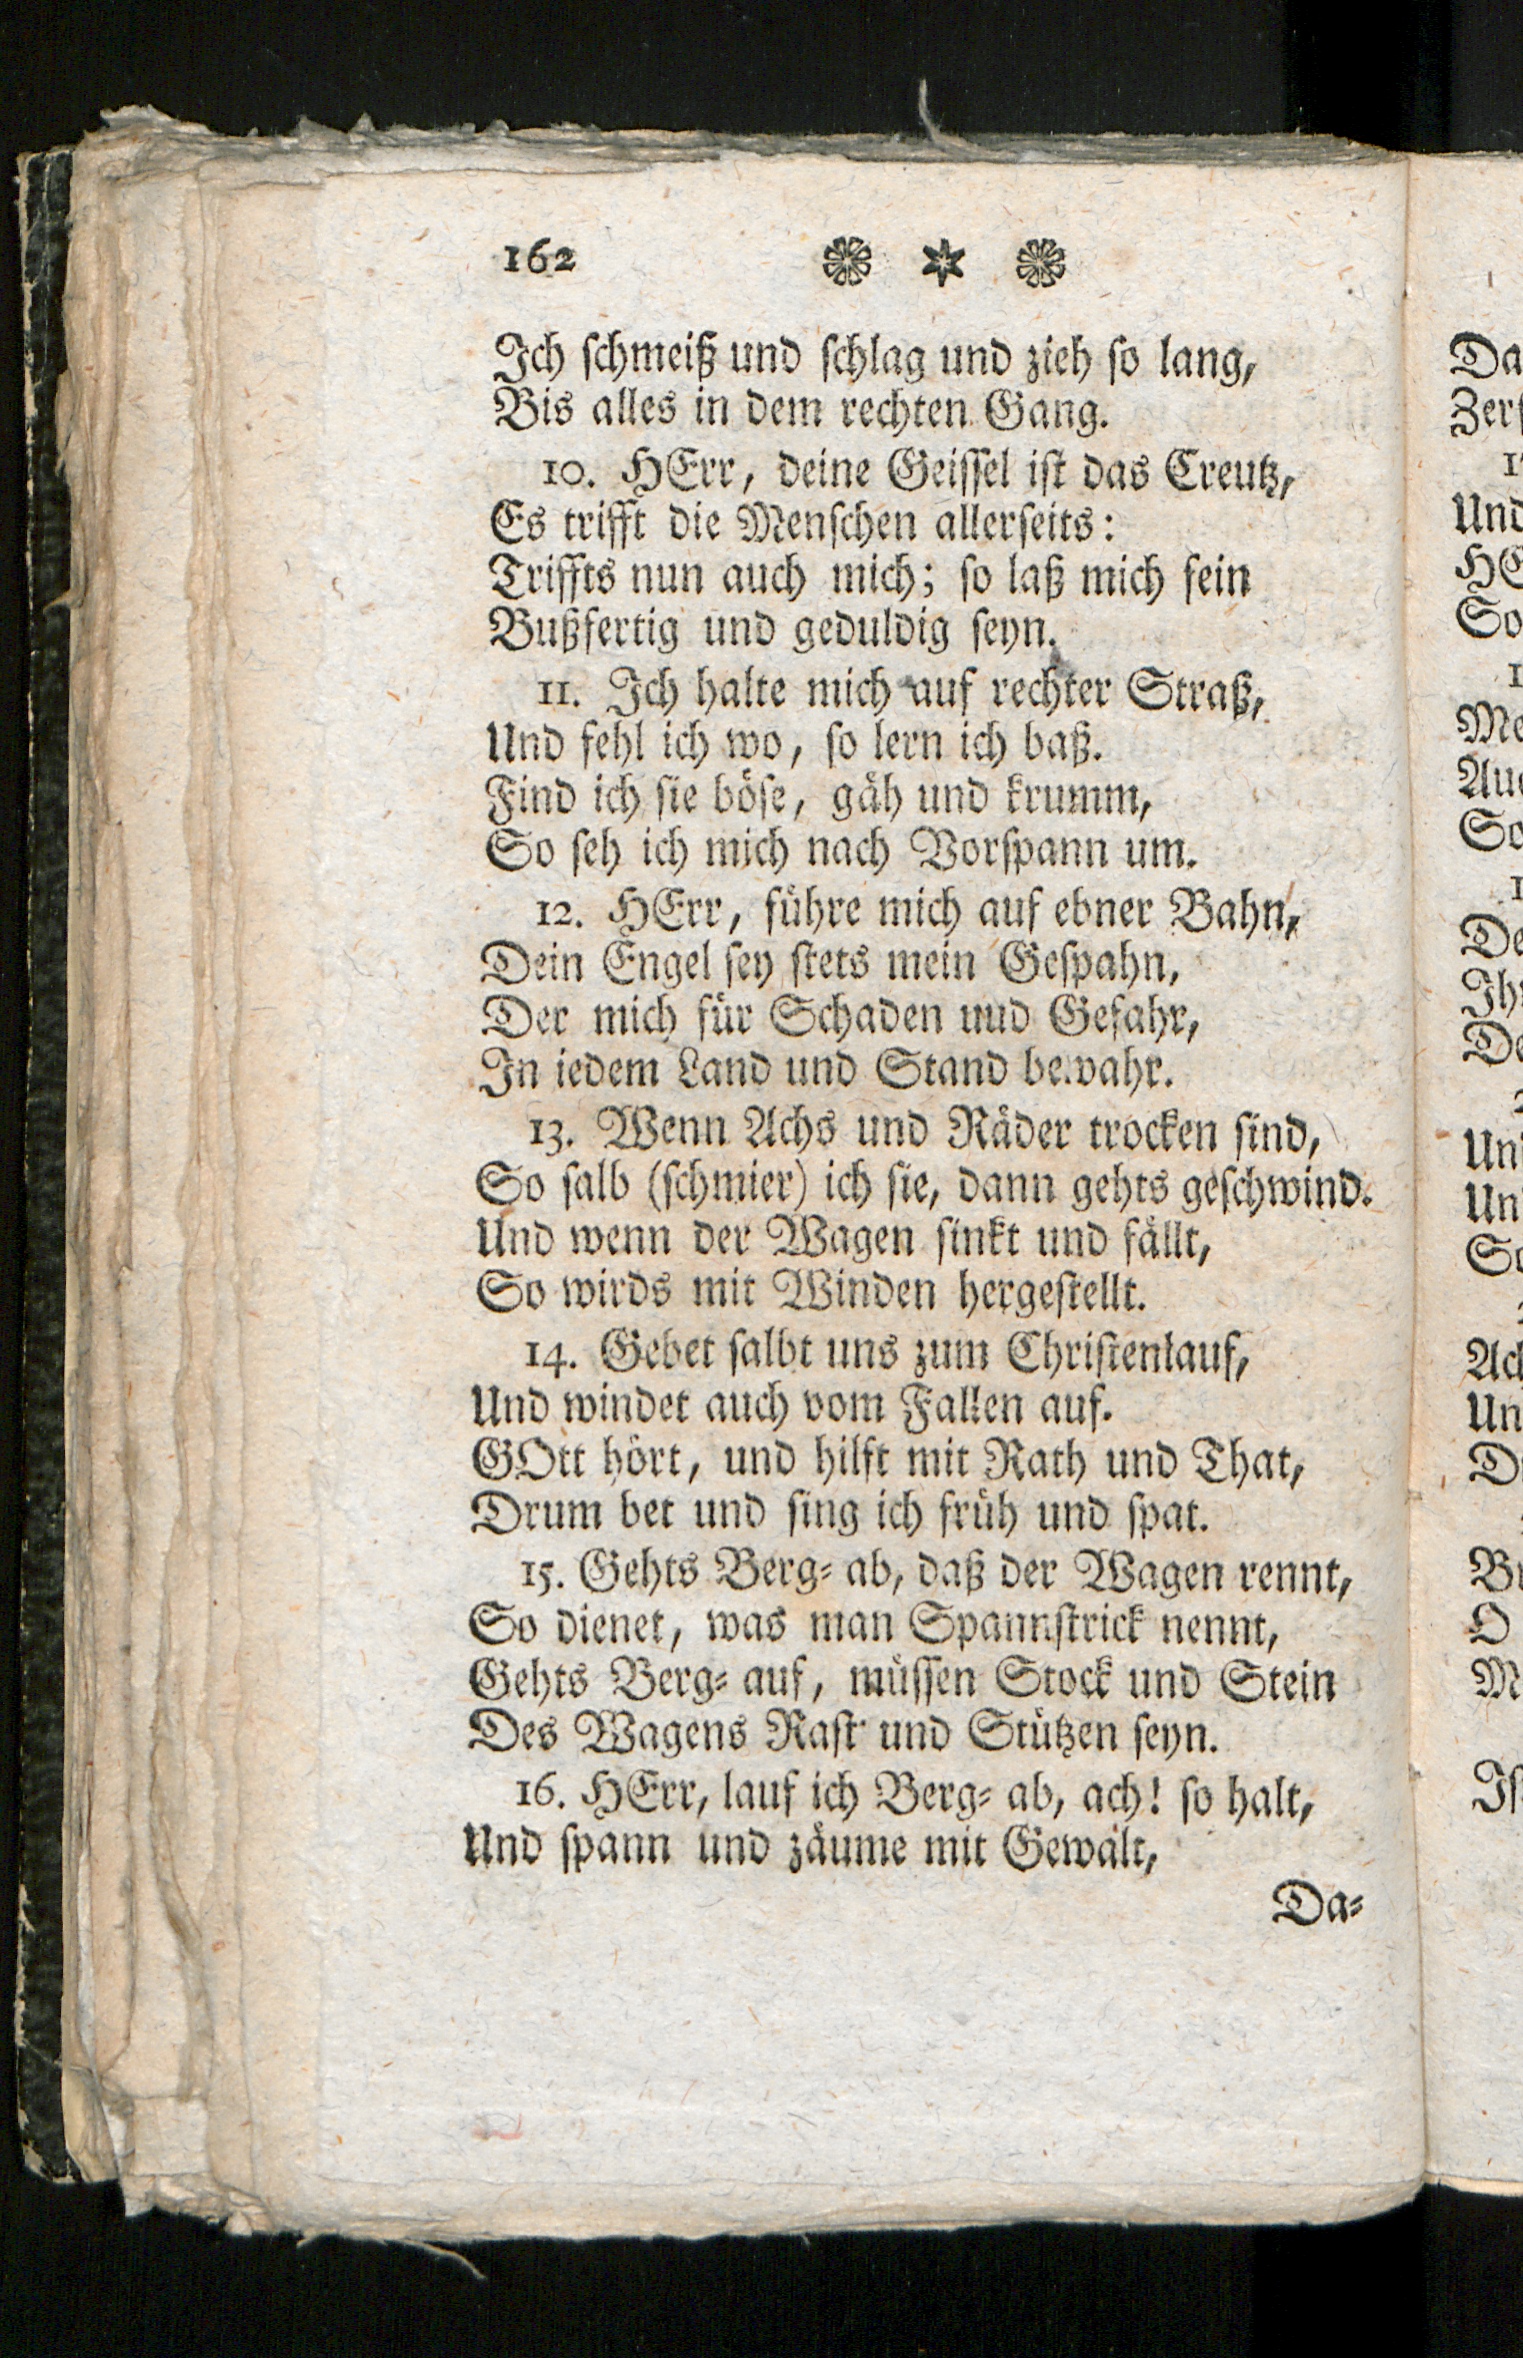 162
Ich schmeiß und schlag und zieh so lang,
Bis alles in dem rechten Gang.
10. HErr, deine Geissel ist das Creutz,
Es trifft die Menschen allerseits:
Triffts nun auch mich; so laß mich fein
Bußfertig und geduldig seyn.
11. Ich halte mich auf rechter Straß,
Und fehl ich wo, so lern ich baß.
Find ich sie böse, gäh und krumm,
So seh ich mich nach Vorspann um.
12. HErr, führe mich auf ebner Bahn,
Dein Engel sey stets mein Gespahn,
Der mich für Schaden uud Gefahr,
In iedem Land und Stand bewahr.
13. Wenn Achs und Räder trocken sind,
So salb (schmier) ich sie, dann gehts geschwind.
Und wenn der Wagen sinkt und fällt,
So wirds mit Winden hergestellt.
14. Gebet salbt uns zum Christenlauf,
Und windet auch vom Fallen auf.
GOtt hört, und hilft mit Rath und That,
Drum bet und sing ich früh und spat.
15. Gehts Berg-ab, daß der Wagen rennt,
So dienet, was man Spannstrick nennt,
Gehts Berg-auf, müssen Stock und Stein
Des Wagens Rast und Stützen seyn.
16. HErr, lauf ich Berg-ab, ach! so halt,
Und spann und zäume mit Gewalt,
Da-